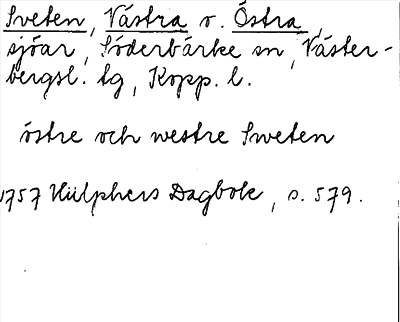 Sveten, Västra o. Östra,
sjöar, Söderbärke sn, Väster-
bergsl. tg, Kopp. l.
östre och westre Sweten
1757 Hülphers Dagbok, s. 579.